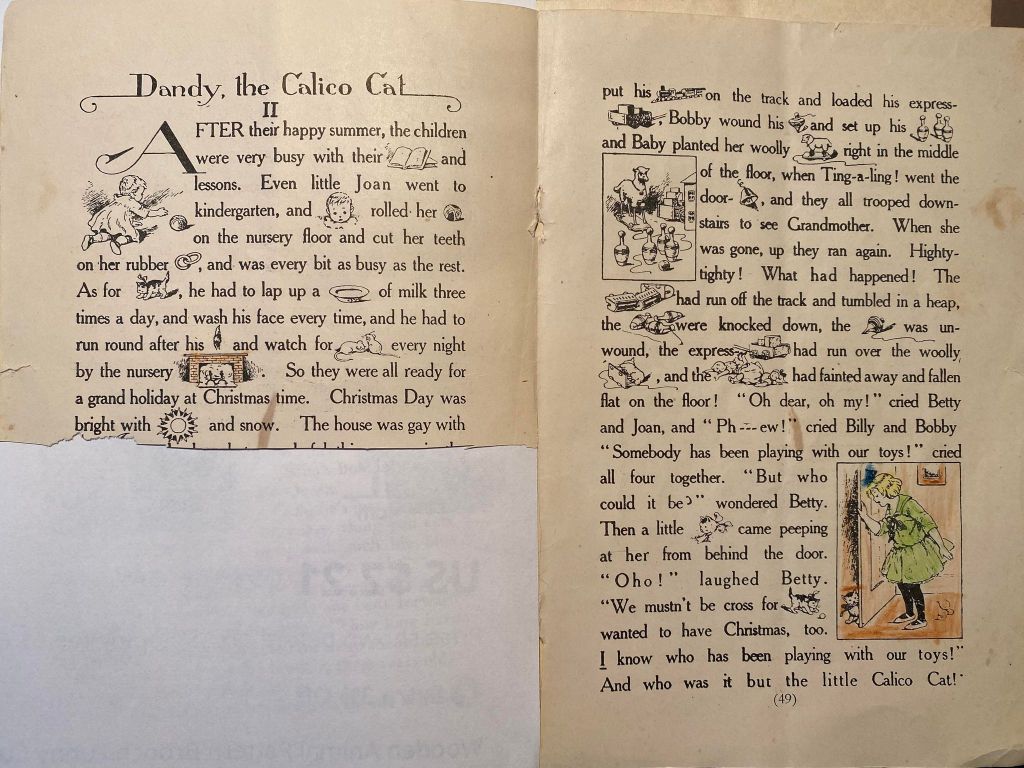 Dandy, the Calico Cat
II
AFTER their happy summer, the children
were very busy with their and
lessons. Even little Joan went to
kindergarten, and rolled her
on the nursery floor and cut her teeth
on her rubber , and was every bit as busy as the rest.
As for , he had to lap up a of milk three
times a day, and wash his face every time, and he had to
run round after his and watch for every night
by the nursery . So they were all ready for
a grand holiday at Christmas time. Christmas Day was
bright with and snow. The house was gay with
put his on the track and loaded his express-
, Bobby wound his and set up his
and Baby planted her woolly right in the middle
of the floor, when Ting-a-ling! went the
door- , and they all trooped down-
stairs to see Grandmother. When she
was gone, up they ran again. Highty-
tighty! What had happened! The
had run off the track and tumbled in a heap,
the were knocked down, the was un-
wound, the express had run over the woolly
, and the had fainted away and fallen
flat on the floor! "Oh dear, oh my!" cried Betty
and Joan, and "Ph---ew!" cried Billy and Bobby
"Somebody has been playing with our toys!" cried
all four together. "But who
could it be?" wondered Betty.
Then a little came peeping
at her from behind the door.
"Oho!" laughed Betty.
"We mustn't be cross for
wanted to have Christmas, too.
I know who has been playing with our toys!"
And who was it but the little Calico Cat!
(49)